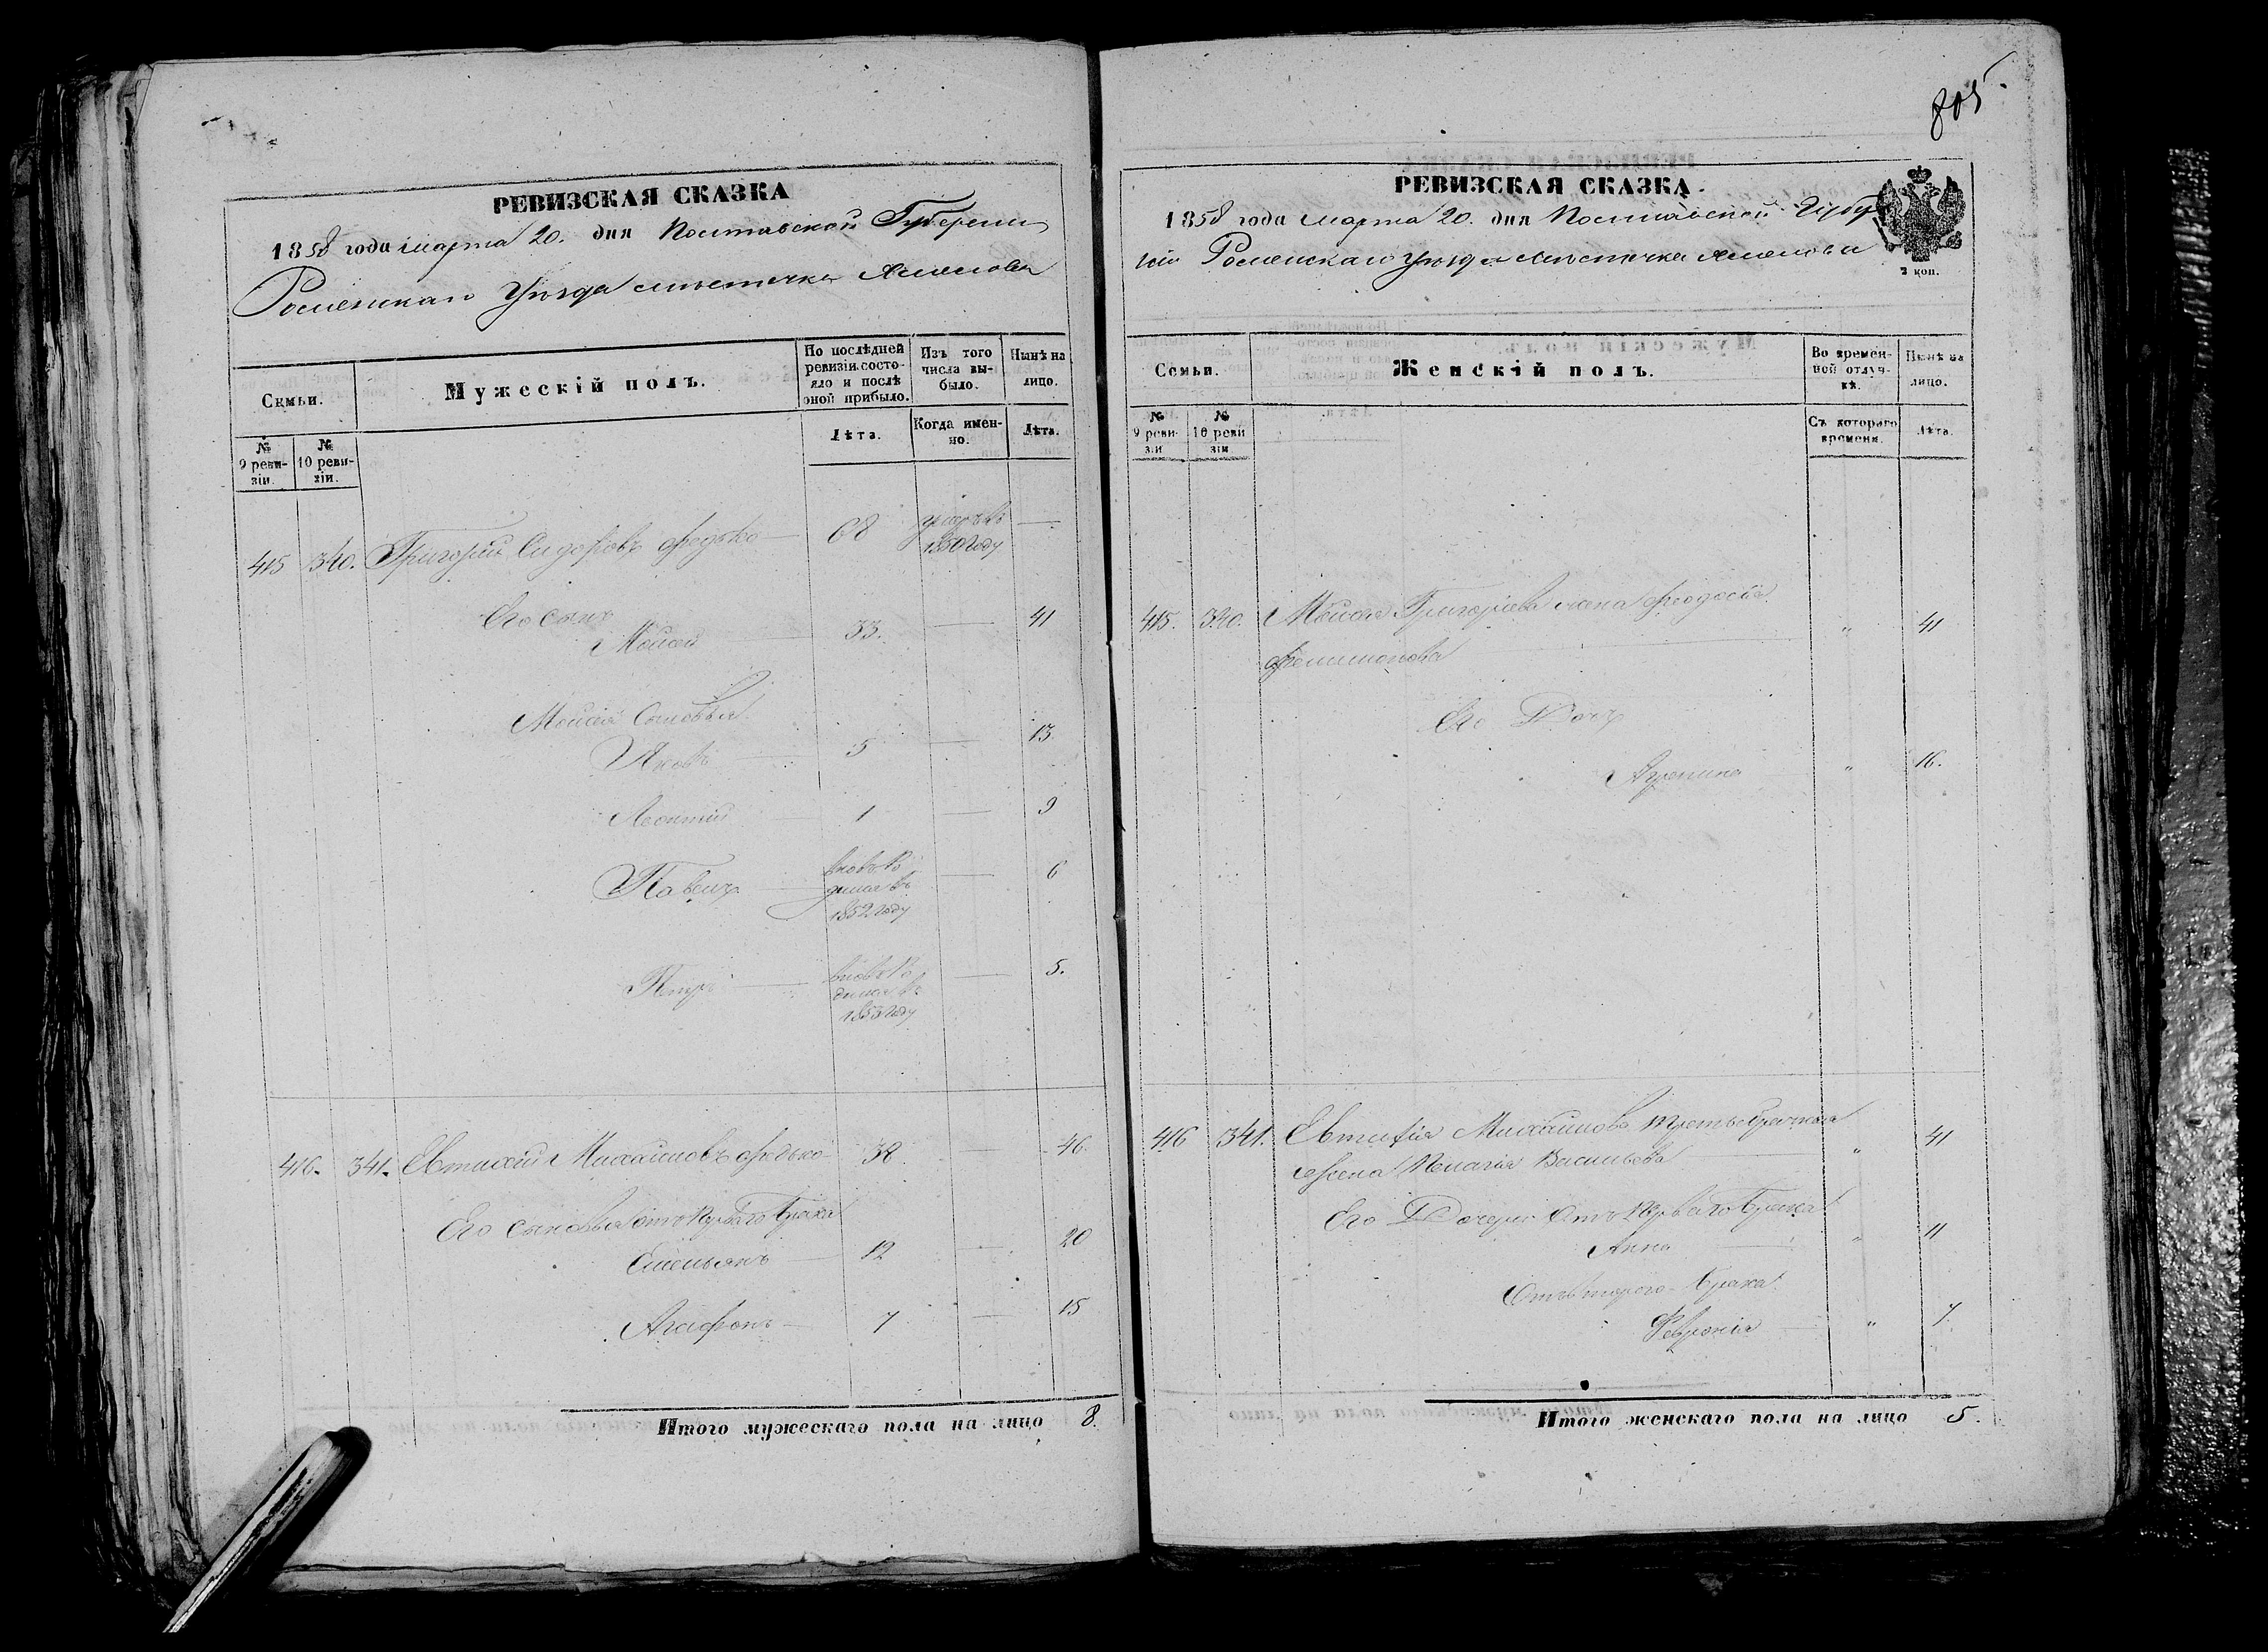 805
РЕВИЗСКАЯ СКАЗКА
1858 года марта 20. дня Полтавской Губернии
Роменскаго Уѣзда мѣстечка
Семьи.
Мужескій полъ.
По послѣдней ревизіи состояло и послѣ оной прибыло.
Изъ того числа выбыло.
Нынѣ на лицо.
№ 9 ревизіи.
№ 10 ревизіи.
Лѣта.
Когда именно.
Лѣта.
415 340. Григорій Сидоровъ Федько 68 умеръ въ 1850 году —
Его сынъ
Моисей 33. — 41
Моисея Сыновья
Яковъ — 5 — 13
Леонтий 1 — 9
Павелъ — вновь родился въ 1852 году — 6
Петръ — вновь родился въ 1853 году — 5.
416. 341. Евтихий Михайловъ Федько 38 — 46.
Его сыновья отъ первого брака
Емельянъ — 12 — 20
Агафонъ — 7 — 15
Итого мужескаго пола на лицо 8.
РЕВИЗСКАЯ СКАЗКА.
1858 года марта 20. дня Полтавской Губер
ніи Роменскаго Уѣзда мѣстечка
2 коп.
Семьи.
Женскій полъ.
Во времен-ной отлуч-кѣ.
Нынѣ на лицо.
№ 9 реви-зіи
№ 10 реви зіи
Съ котораго времени.
Лѣта.
415. 340. Моисея Григоріева жена Феодосія " 41
Филимонова
Его Дочь
Агрипина " 16.
416 341. Евтихия Михайлова третьебрачная
жена Пелагія Васильева " 41
Его Дочери отъ первого брака
Анна " 11
Отъ второго брака
Февронія " 7.
Итого женскаго пола на лицо 5.